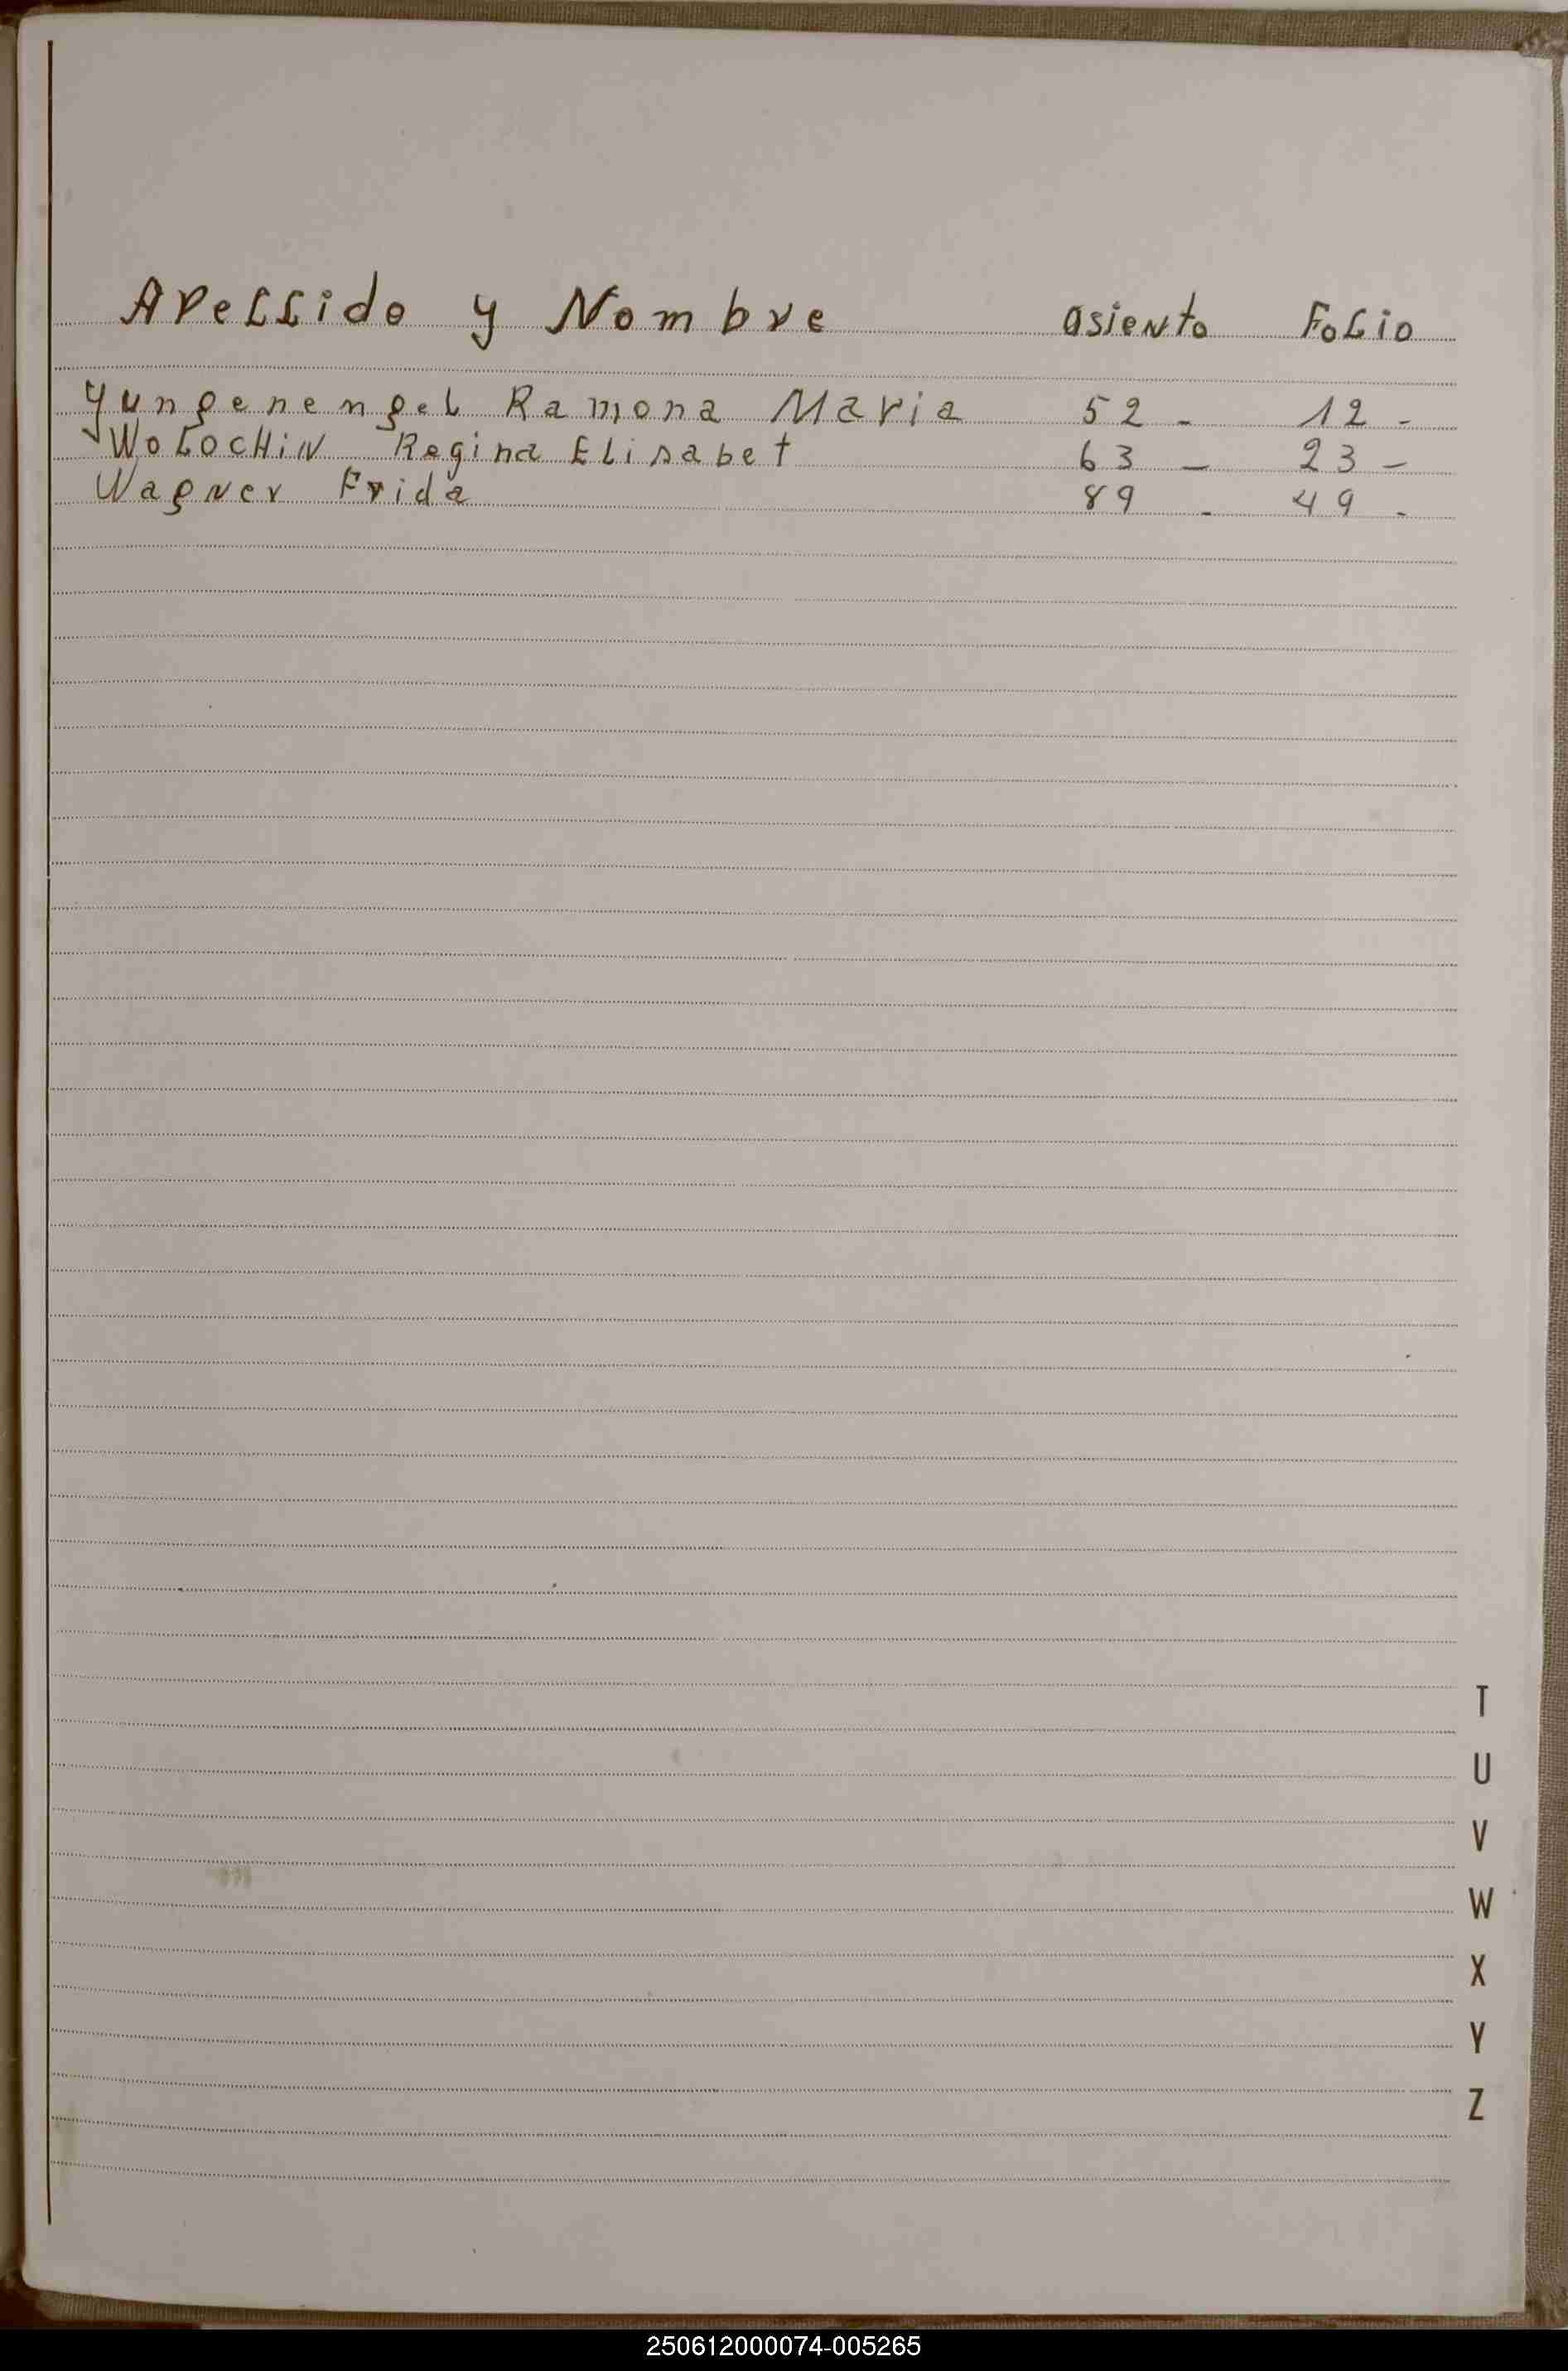 Apellido y Nombre asiento Folio
Yungenengel Ramona Maria 52 - 12 -
Wolochin Regina Elisabet 63 - 23 -
Wagner Frida 89 - 49 -
T
U
V
W
X
Y
Z
250612000074-005265